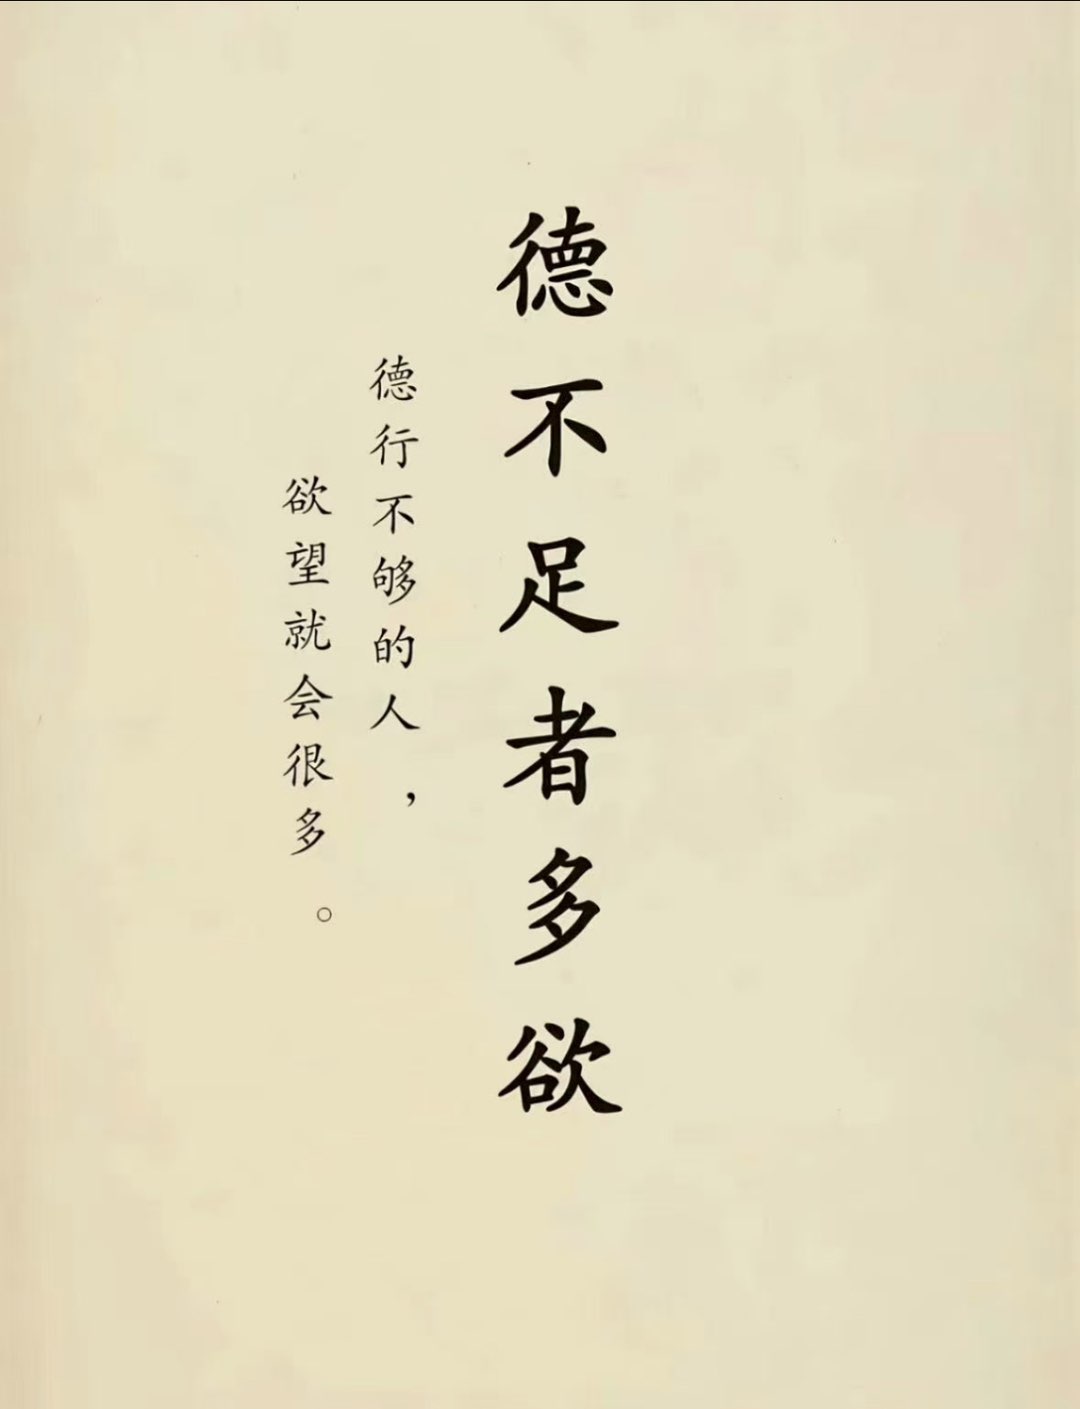 德不足者多欲
德行不够的人，
欲望就会很多。